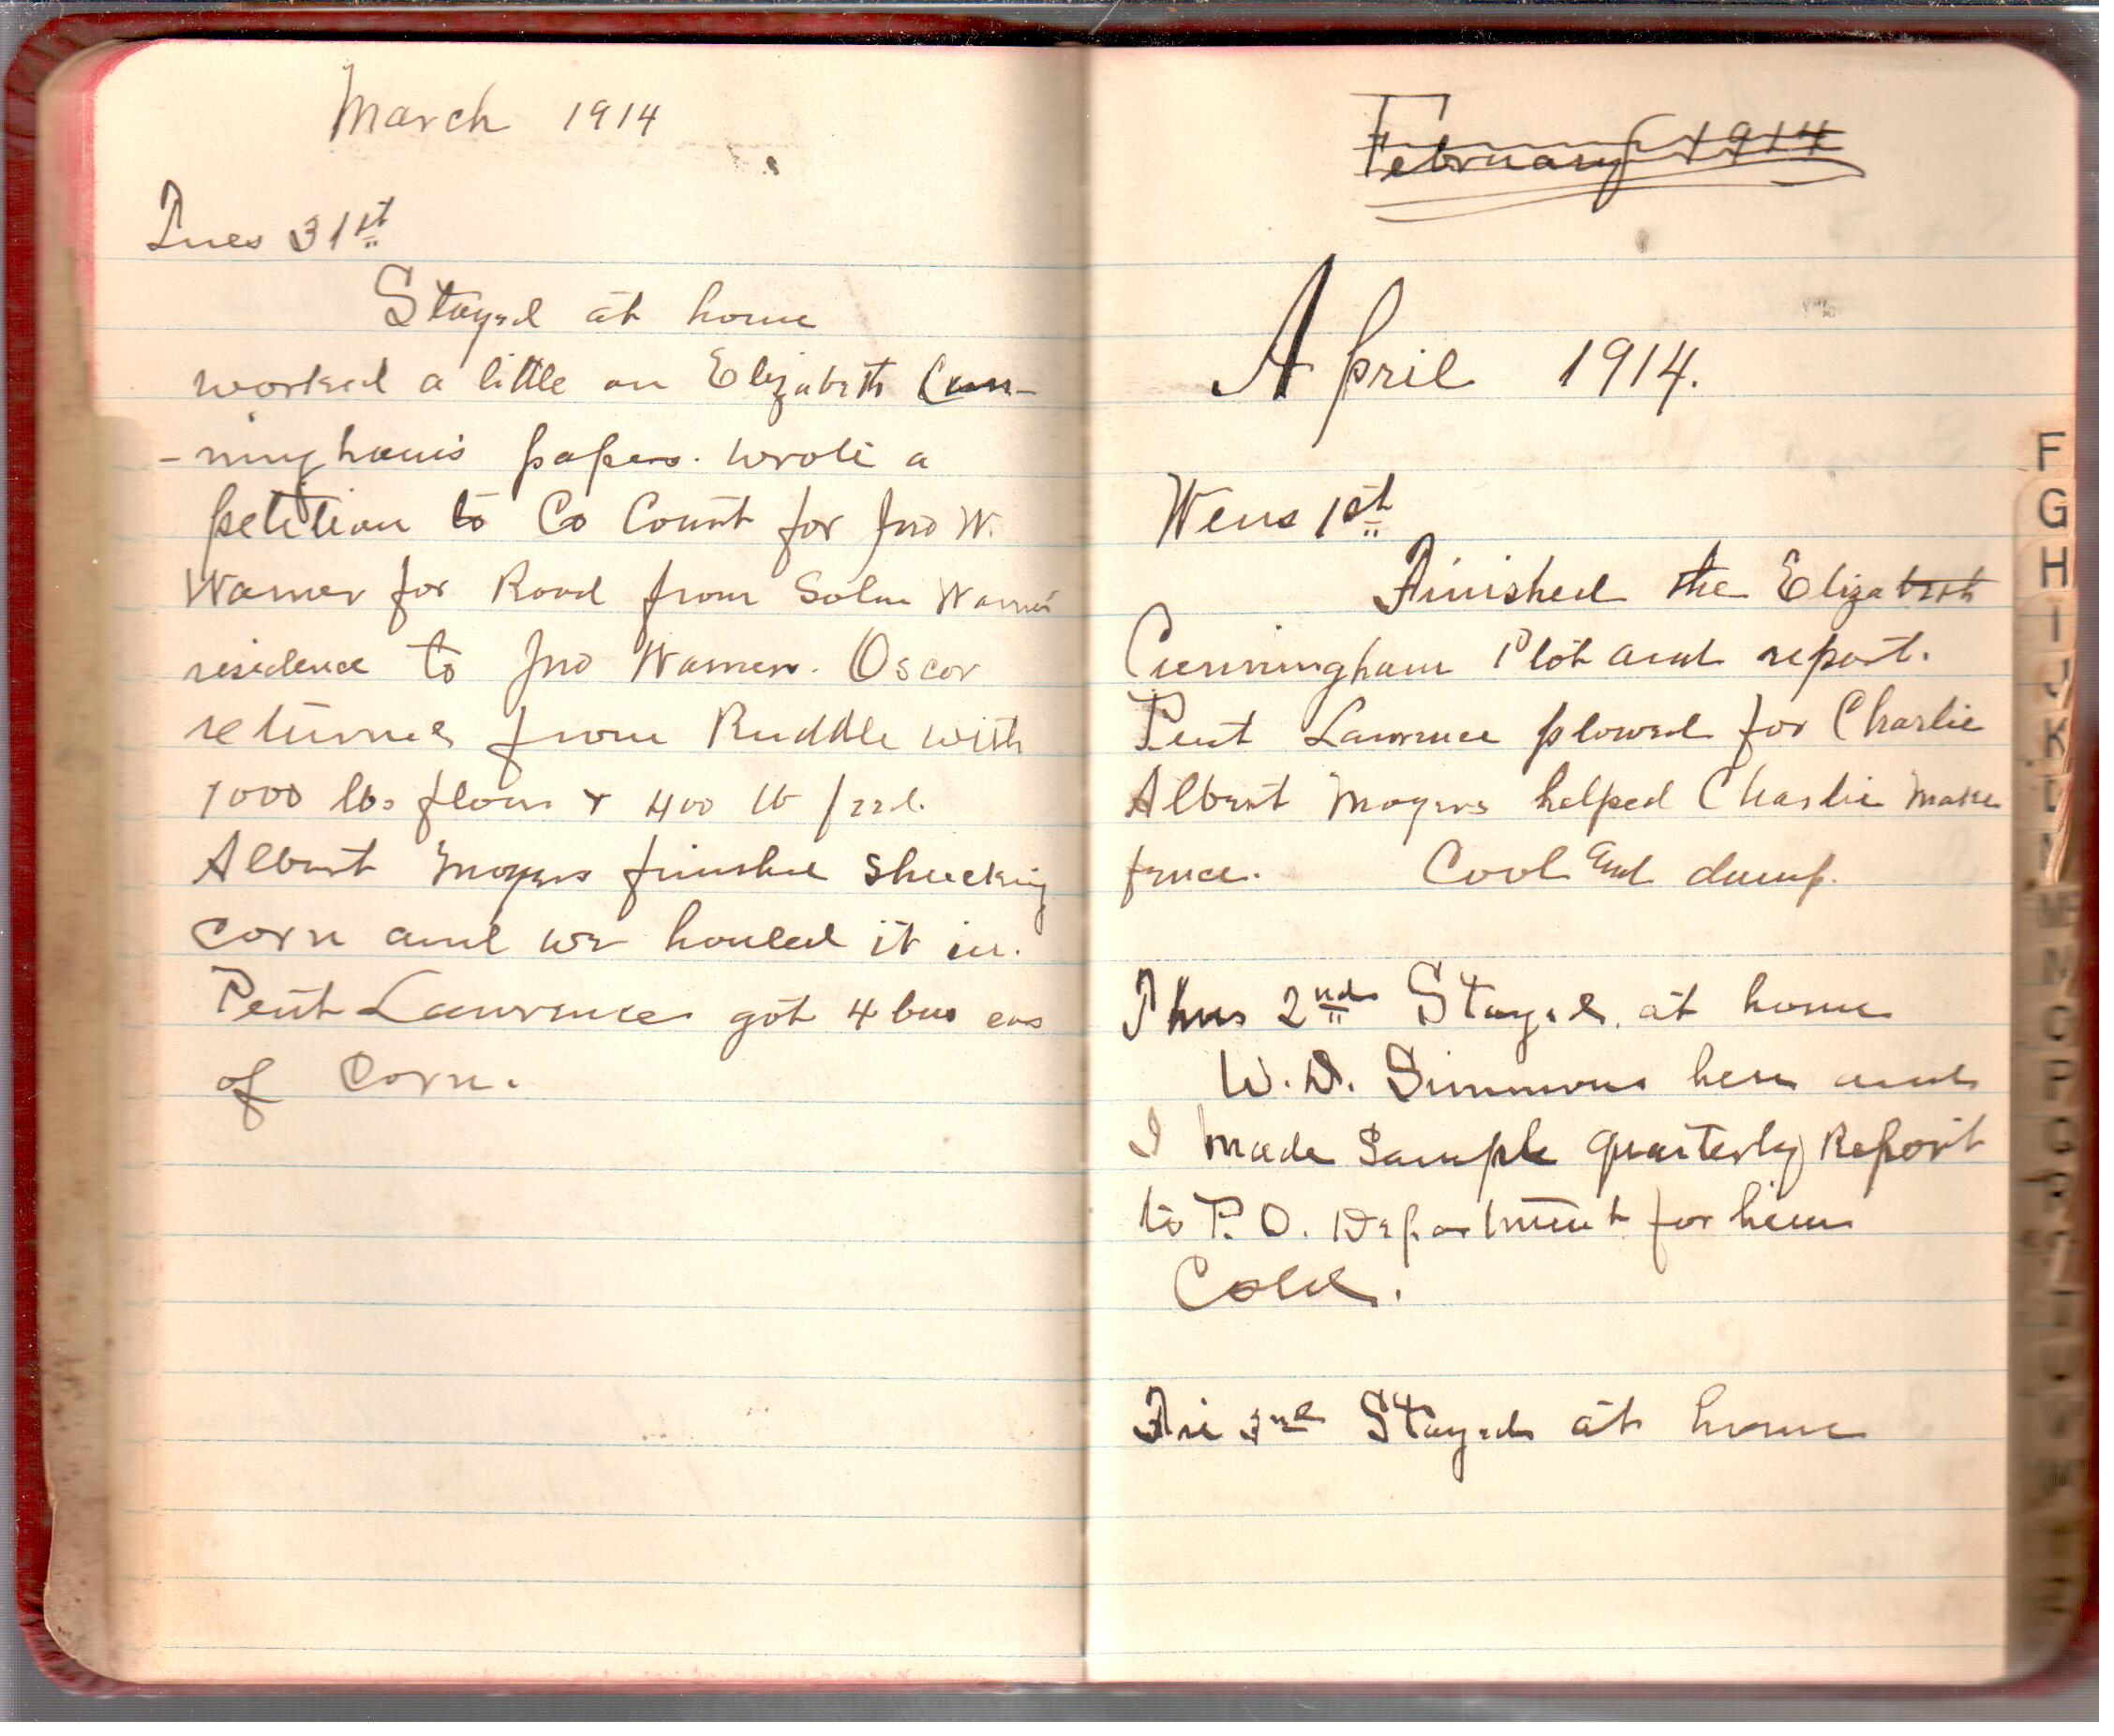 March 1914
Tues 31st
Stayed at home
worked a little on Elizabeth Cun-
-ningham's papers. wrote a
petition to Co Court for Jno W.
Warner for Road from Solm Warner
residence to Jno Warners. Oscar
returned from Ruddle with
1000 lbs flour & 400 lb feed.
Albert Moyers finished shucking
corn and we houled it in.
Pent Lawrence got 4 bus ears
of Corn.
February 1914
April 1914.
Wens 1st
Finished the Elizabeth
Cunningham Plot and report.
Pent Lawrence plowed for Charlie
Albert Moyers helped Charlie make
fence. Cool and damp.
Thurs 2nd Stayed at home
W. D. Simmons here and
I made Sample quarterly Report
to P. O. Department for him
Cold.
Fri 3rd Stayed at home
F
G
H
I
J
K
L
M
Mc
N
O
P
Q
R